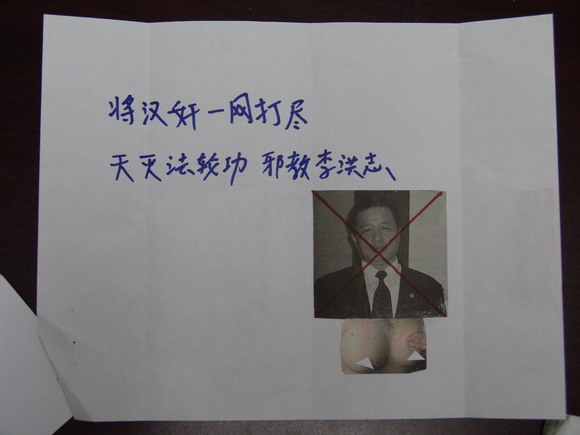 将汉奸一网打尽
天灭法轮功 邪教李洪志